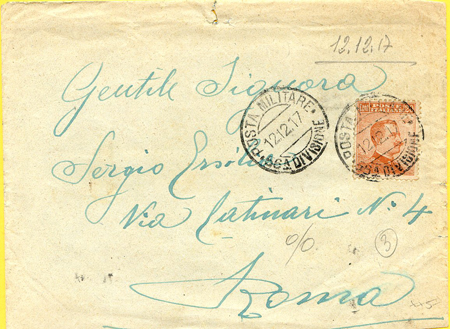 12.12.17
Gentile Signora
POSTA MILITARE
12.12.17
DIVISIONE
POSTA
12.12.17
DIVISIONE
Sergio
Via Catinari N. 4
%
3
Roma